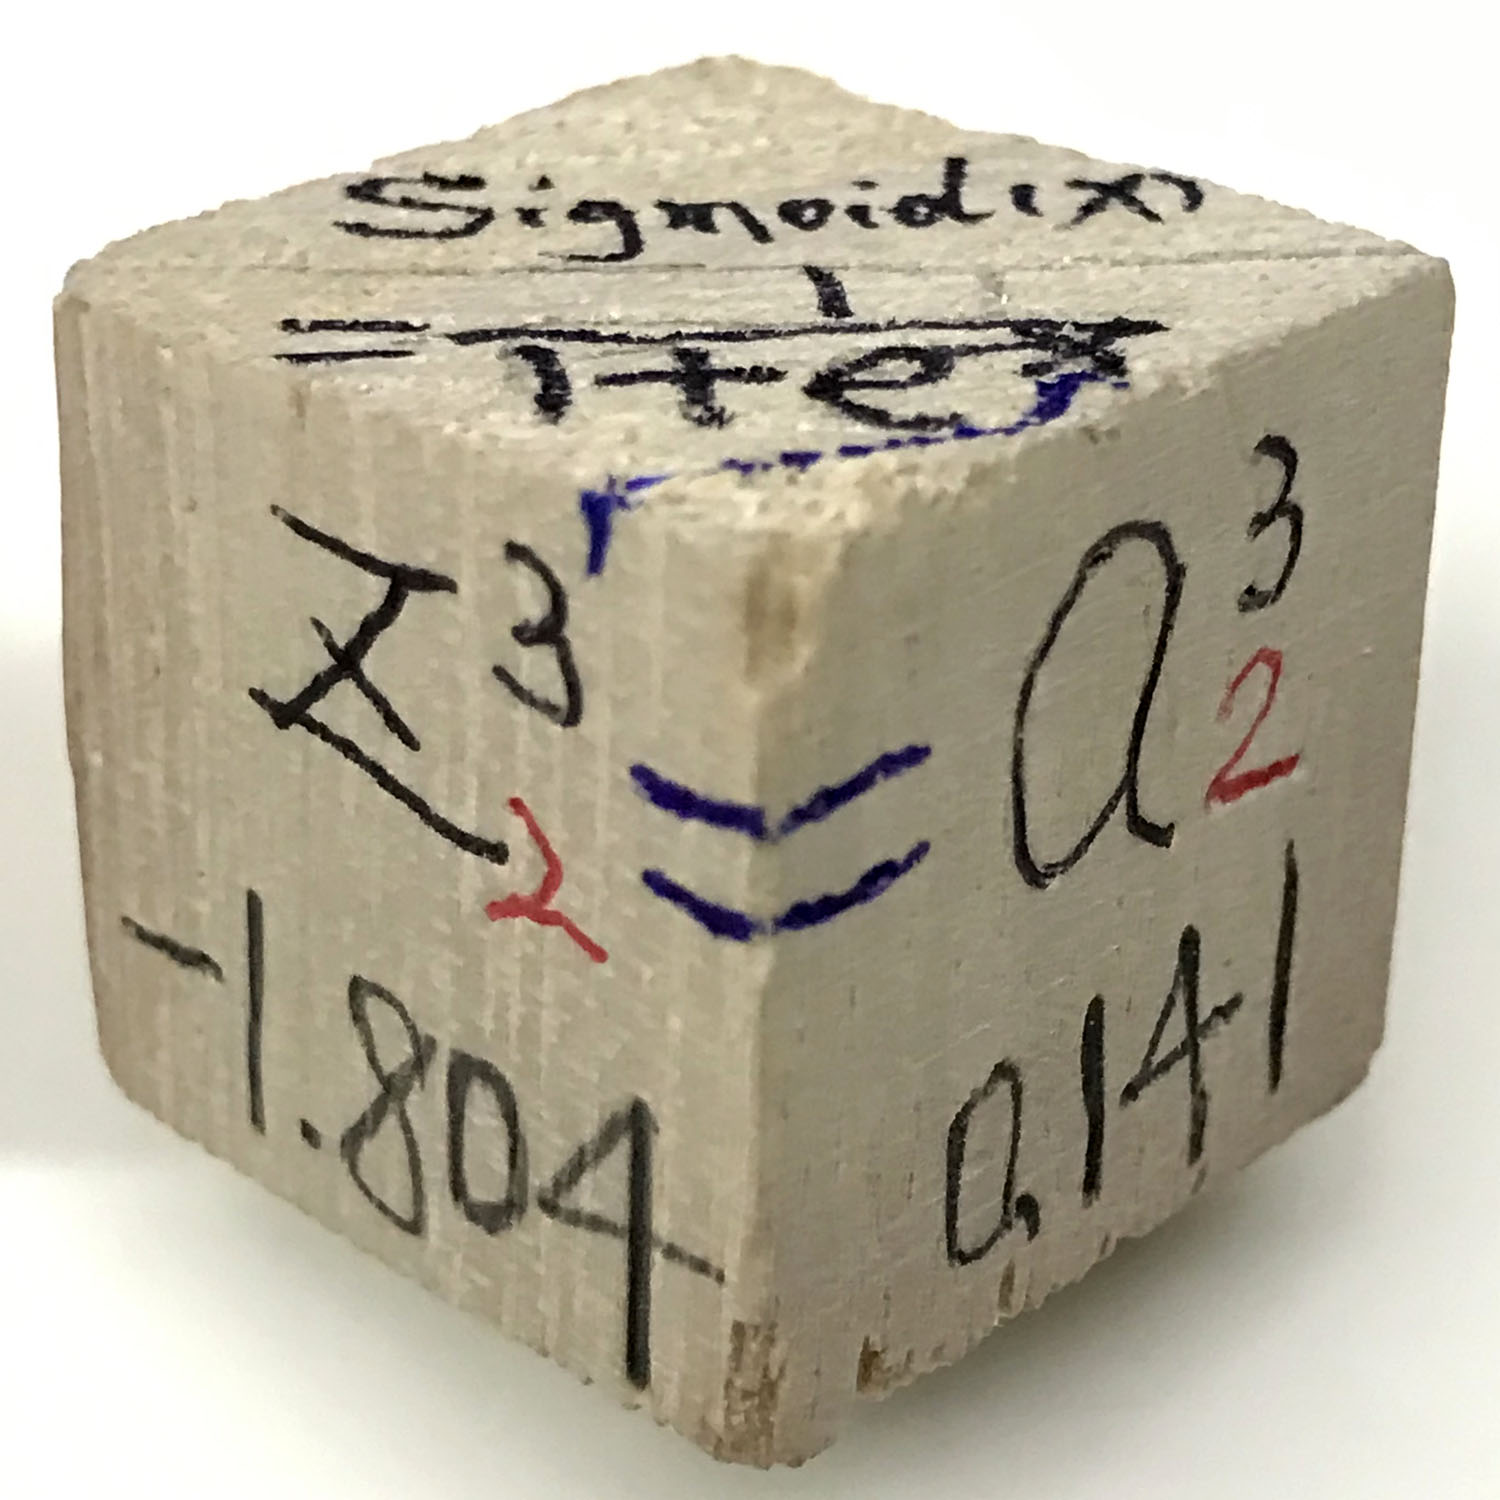 Sigmoid(x)
= 1
1+e^-x
Z^3_2 = a^3_2
-1.804
0.141